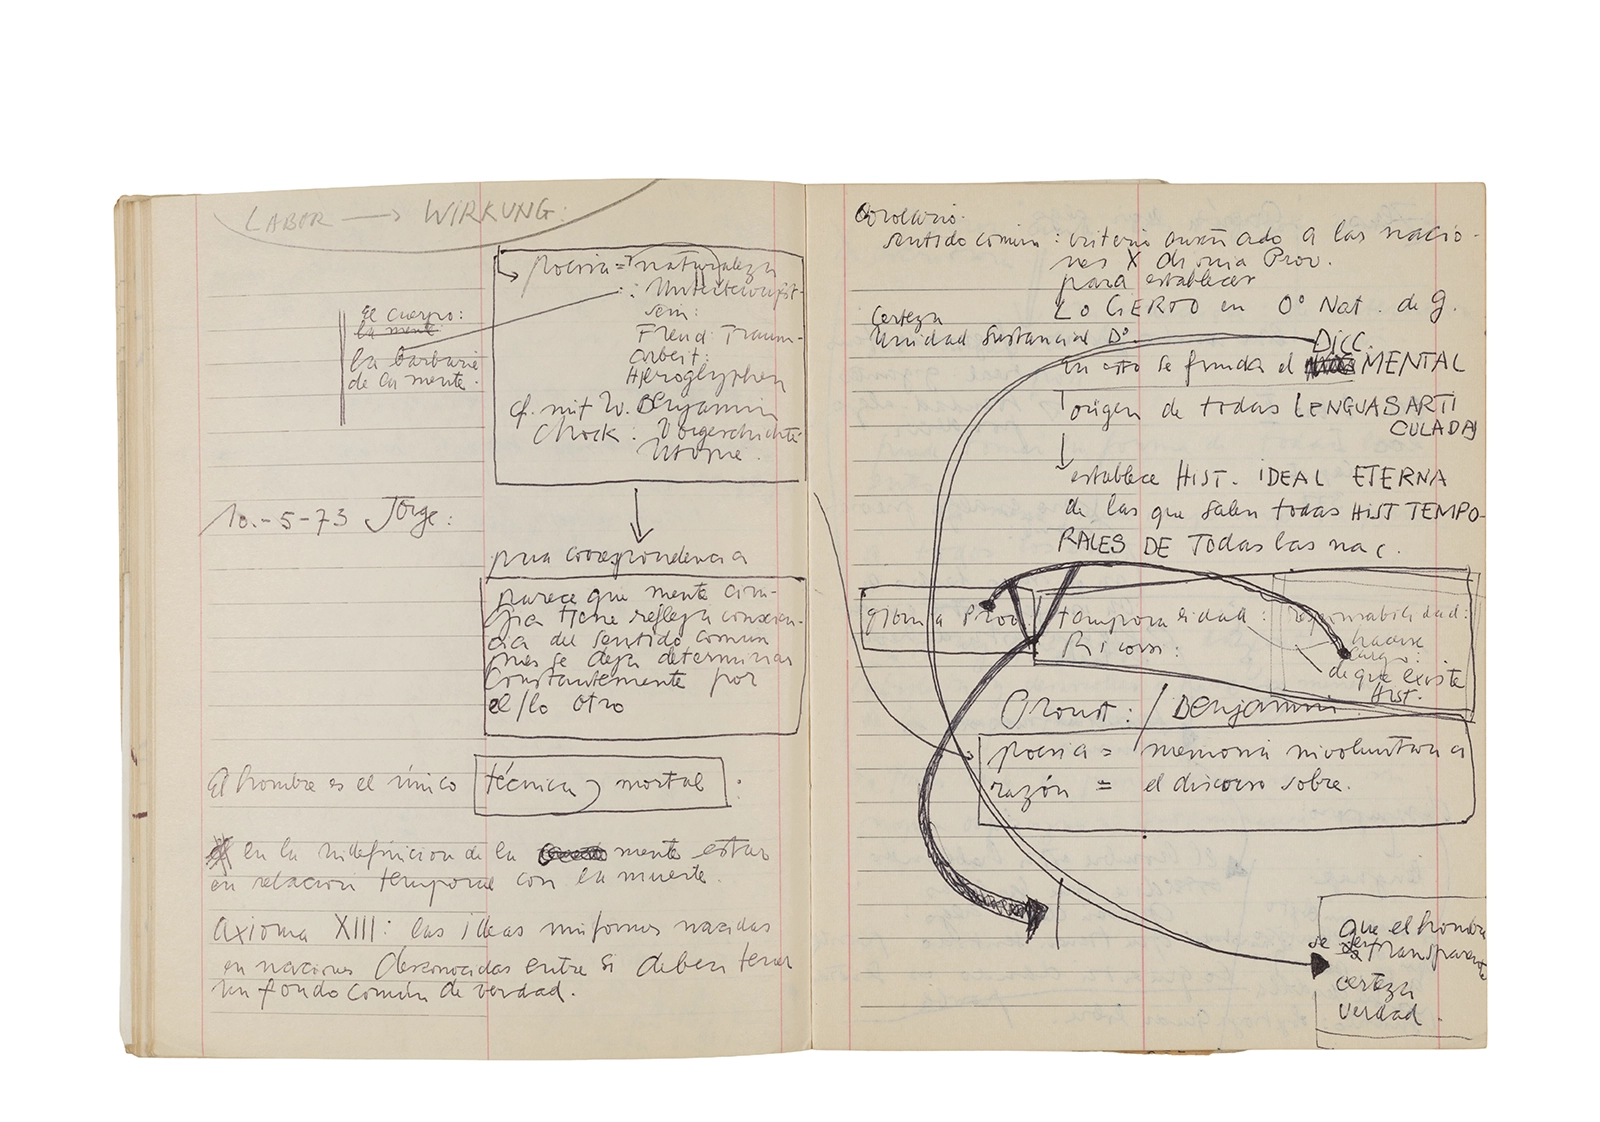 LABOR → WIRKUNG:
poesia = naturaleza
sein:
Freud: Traum-
arbeit:
Hieroglyphen
cf. mit W. Benjamin
Chock: Vorgeschichte
Utopie.
el cuerpo:
la mente
la barbarie
de la mente.
10.-5-73 Jorge:
pura correspondencia
parece que mente
tiene refleja conscien-
cia del sentido común
pues se deja determinar
constantemente por
el/lo otro
El hombre es el único técnica y mortal:
en la indefinicion de la mente estar
en relacion temporal con la muerte.
Axioma XIII: las ideas uniformes nacidas
en naciones desconocidas entre si deben tener
un fondo común de verdad.
Corolario.
sentido comun: criterio enseñado a las nacio-
nes X divina Prov.
para establecer
LO CIERTO en Nat. de g.
Certeza
Unidad Sustancial Dº.
DICC.
en esto se funda el MENTAL
origen de todas LENGUAS ARTI
CULADAS
establece HIST. IDEAL ETERNA
de las que salen todas HIST TEMPO-
RALES DE TODAS las nac.
Prov.
temporalidad:
Ricorsi:
responsabilidad:
hacerse
cargo:
de que existe
Hist.
Proust: / Benjamin:
poesia = memoria involuntaria
razón = el discurso sobre.
que el hombre
se transparente
certeza
verdad.